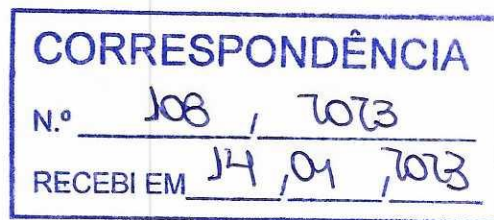 CORRESPONDÊNCIA
N.º 108 / 2023
RECEBI EM 14 / 01 / 2023